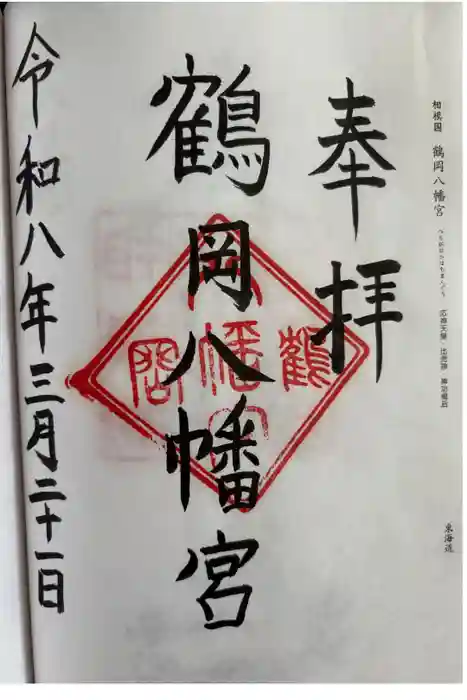 相模国 鶴岡八幡宮 つるがおかはちまんぐう 応神天皇 比売神 神功皇后
東海道
奉拝
鶴岡八幡宮
鶴岡八幡宮
令和八年三月二十一日